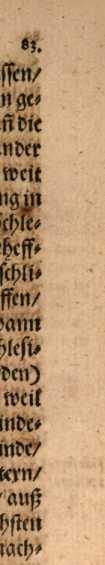 83.
ssen/
n ge⸗
n̄ die
ander
weit
ng in
chle⸗
heff⸗
schli⸗
ffen/
dann
hlesi⸗
den)
weil
inde⸗
inde/
tern/
auß
hsten
nach⸗